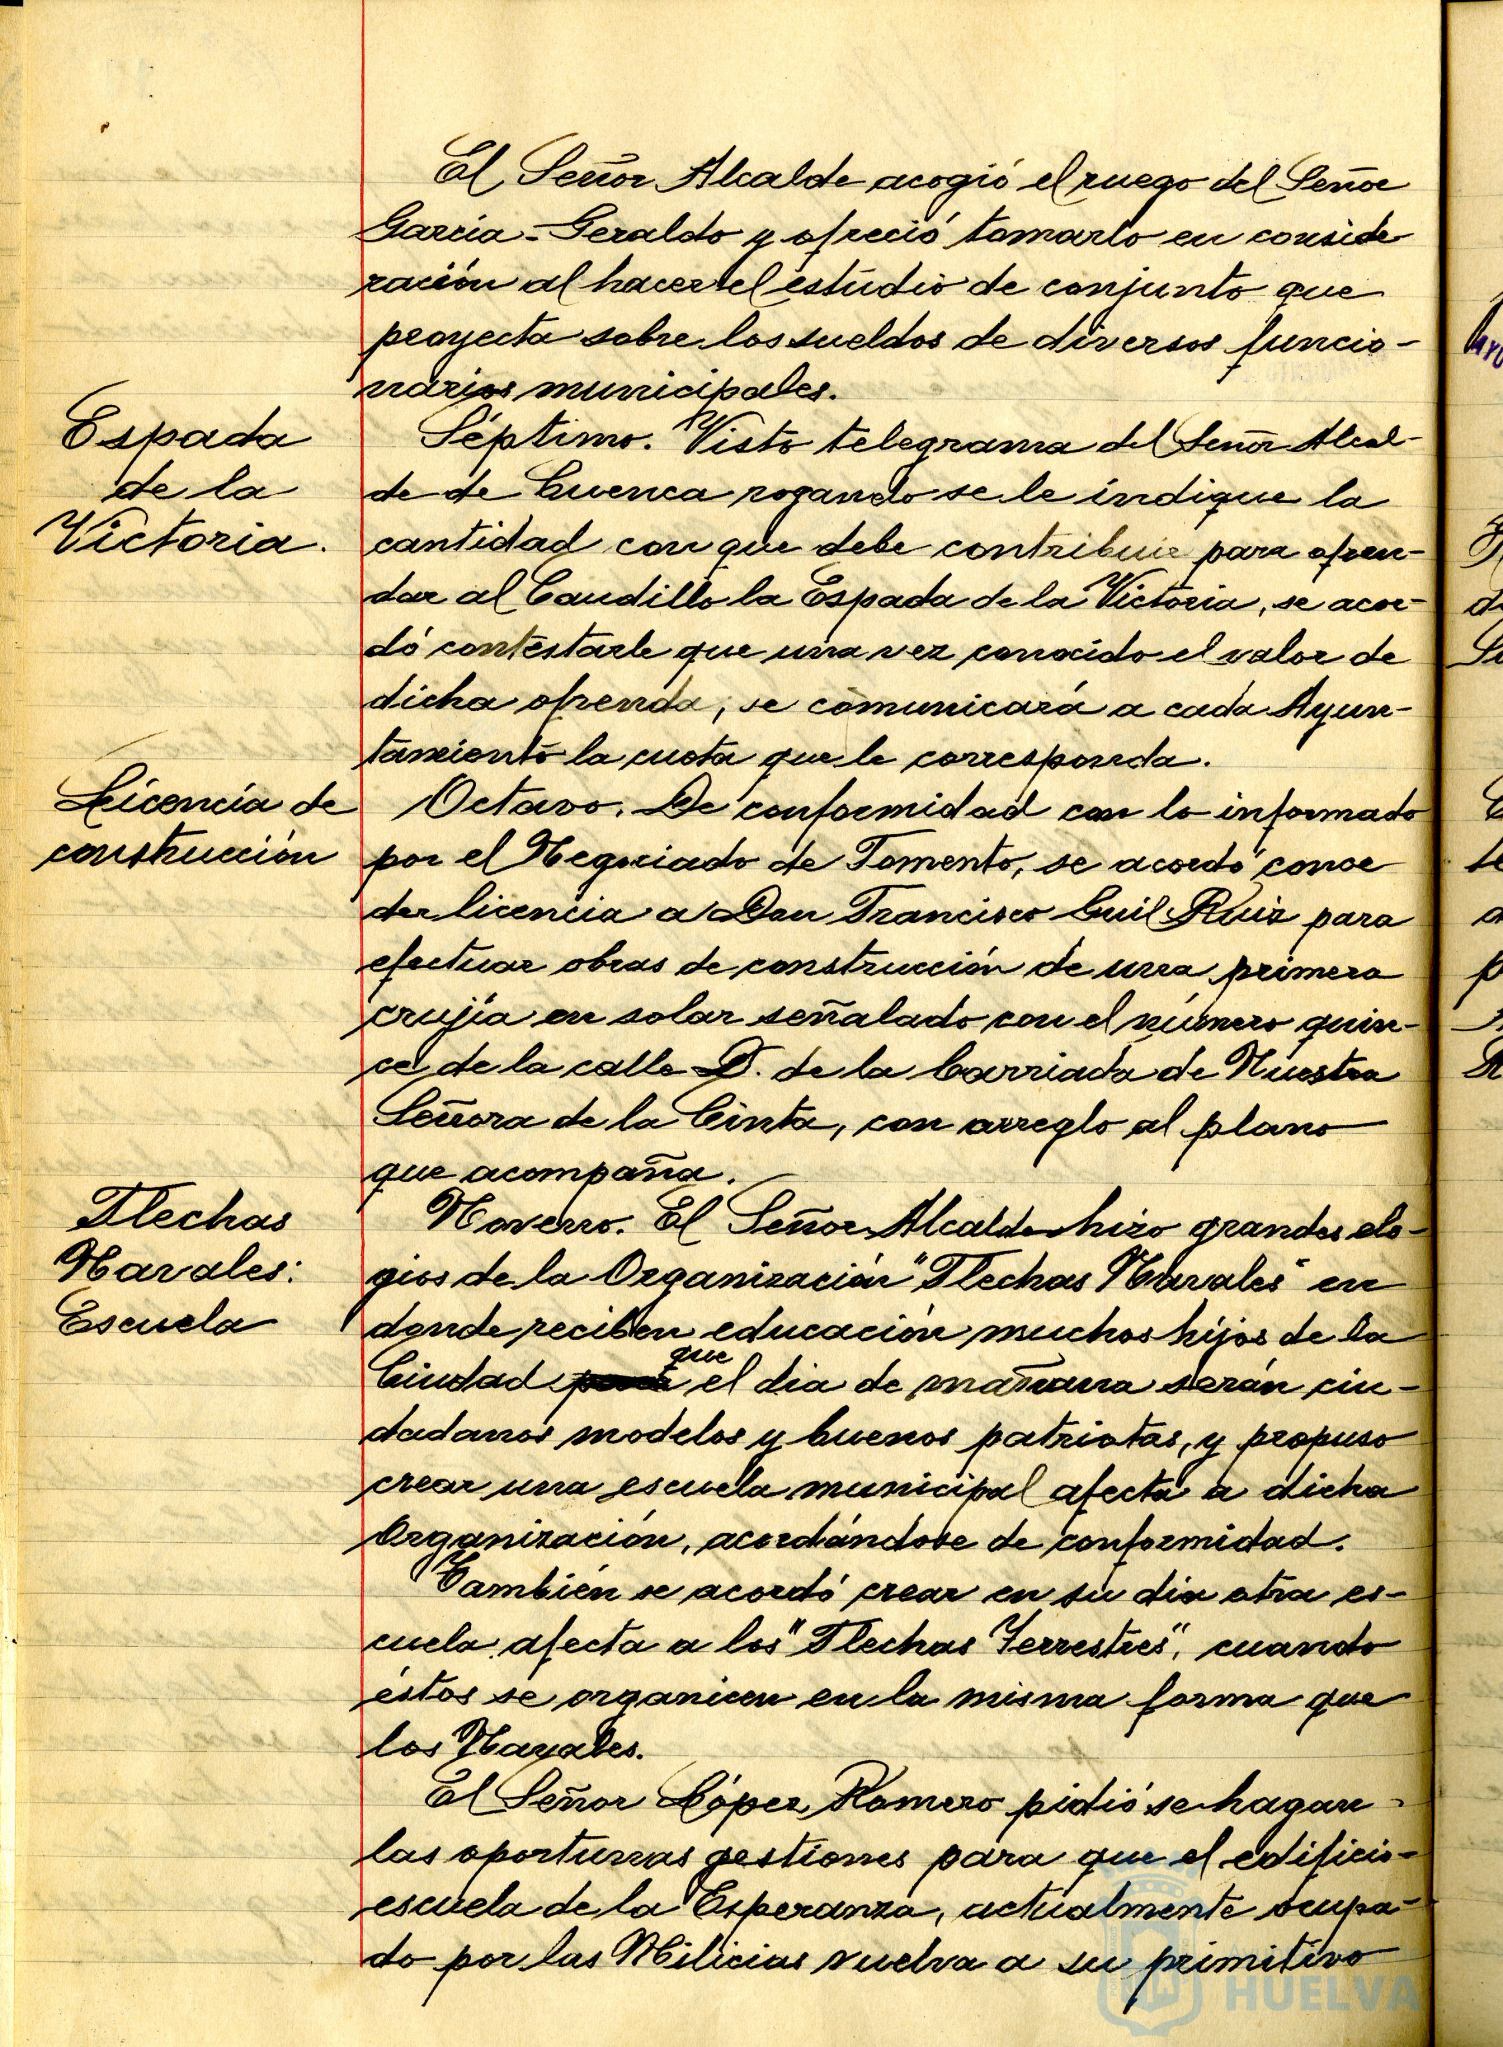 El Señor Alcalde acogió el ruego del Señor
García-Geraldo y ofreció tomarlo en conside
ración al hacer el estudio de conjunto que
proyecta sobre los sueldos de diversos funcio-
narios municipales.
Espada
de la
Victoria.
Séptimo. Visto telegrama del Señor Alcal-
de de Cuenca rogando se le indique la
cantidad con que debe contribuir para ofren-
dar al Caudillo la Espada de la Victoria, se acor-
dó contestarle que una vez conocido el valor de
dicha ofrenda, se comunicará a cada Ayun-
tamiento la cuota que le corresponda.
Licencia de
construcción
Octavo. De conformidad con lo informado
por el Negociado de Fomento, se acordó conce
der licencia a Don Francisco Guil Ruiz para
efectuar obras de construcción de una primera
crujía en solar señalado con el número quin-
ce de la calle D. de la barriada de Nuestra
Señora de la Cinta, con arreglo al plano
que acompaña.
Flechas
Navales:
Escuela
Noveno. El Señor Alcalde hizo grandes elo-
gios de la Organización "Flechas Navales" en
donde reciben educación muchos hijos de la
Ciudad que el dia de mañana serán ciu-
dadanos modelos y buenos patriotas, y propuso
crear una escuela municipal afecta a dicha
Organización, acordándose de conformidad.
También se acordó crear en su dia otra es-
cuela afecta a los "Flechas Terrestres", cuando
éstos se organicen en la misma forma que
los Navales.
El Señor López Romero pidió se hagan
las oportunas gestiones para que el edificio-
escuela de la Esperanza, actualmente ocupa-
do por las Milicias vuelva a su primitivo
HUELVA